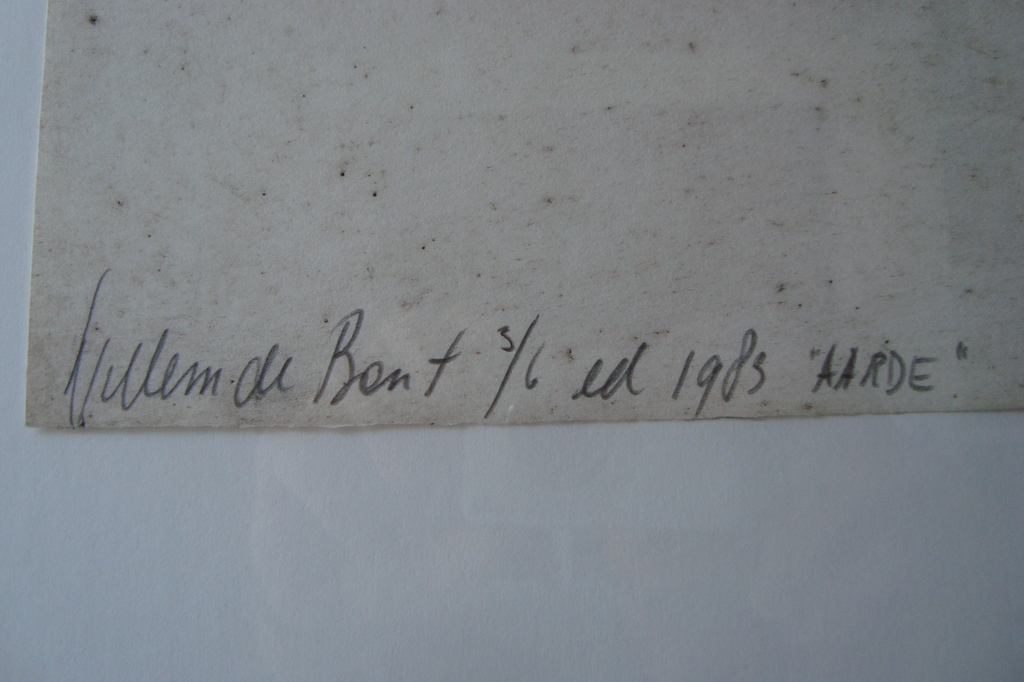 Willem de Bont 3/6 ed 1983 "AARDE"